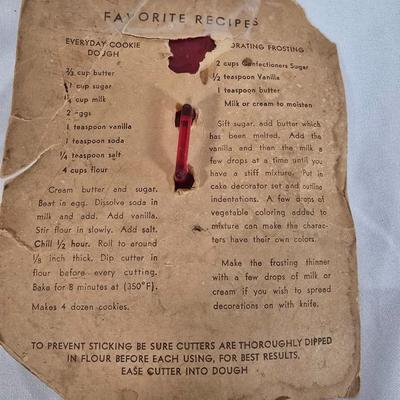 FAVORITE RECIPES
EVERYDAY COOKIE
DOUGH
cup butter
cup sugar
cup milk
2 eggs
1 teaspoon vanilla
1 teaspoon soda
¼ teaspoon salt
4 cups flour
Cream butter and sugar.
Beat in egg. Dissolve soda in
milk and add. Add vanilla.
Stir flour in slowly. Add salt.
Chill ½ hour. Roll to around
⅛ inch thick. Dip cutter in
flour before every cutting.
Bake for 8 minutes at (350°F).
Makes 4 dozen cookies.
ORATING FROSTING
2 cups Confectioners Sugar
½ teaspoon Vanilla
1 teaspoon butter
Milk or cream to moisten
Sift sugar, add butter which
has been melted. Add the
vanilla and then the milk a
few drops at a time until you
have a stiff mixture. Put in
cake decorator set and outline
indentations. A few drops of
vegetable coloring added to
mixture can make the charac-
ters have their own colors.
Make the frosting thinner
with a few drops of milk or
cream if you wish to spread
decorations on with knife.
TO PREVENT STICKING BE SURE CUTTERS ARE THOROUGHLY DIPPED
IN FLOUR BEFORE EACH USING, FOR BEST RESULTS,
EASE CUTTER INTO DOUGH